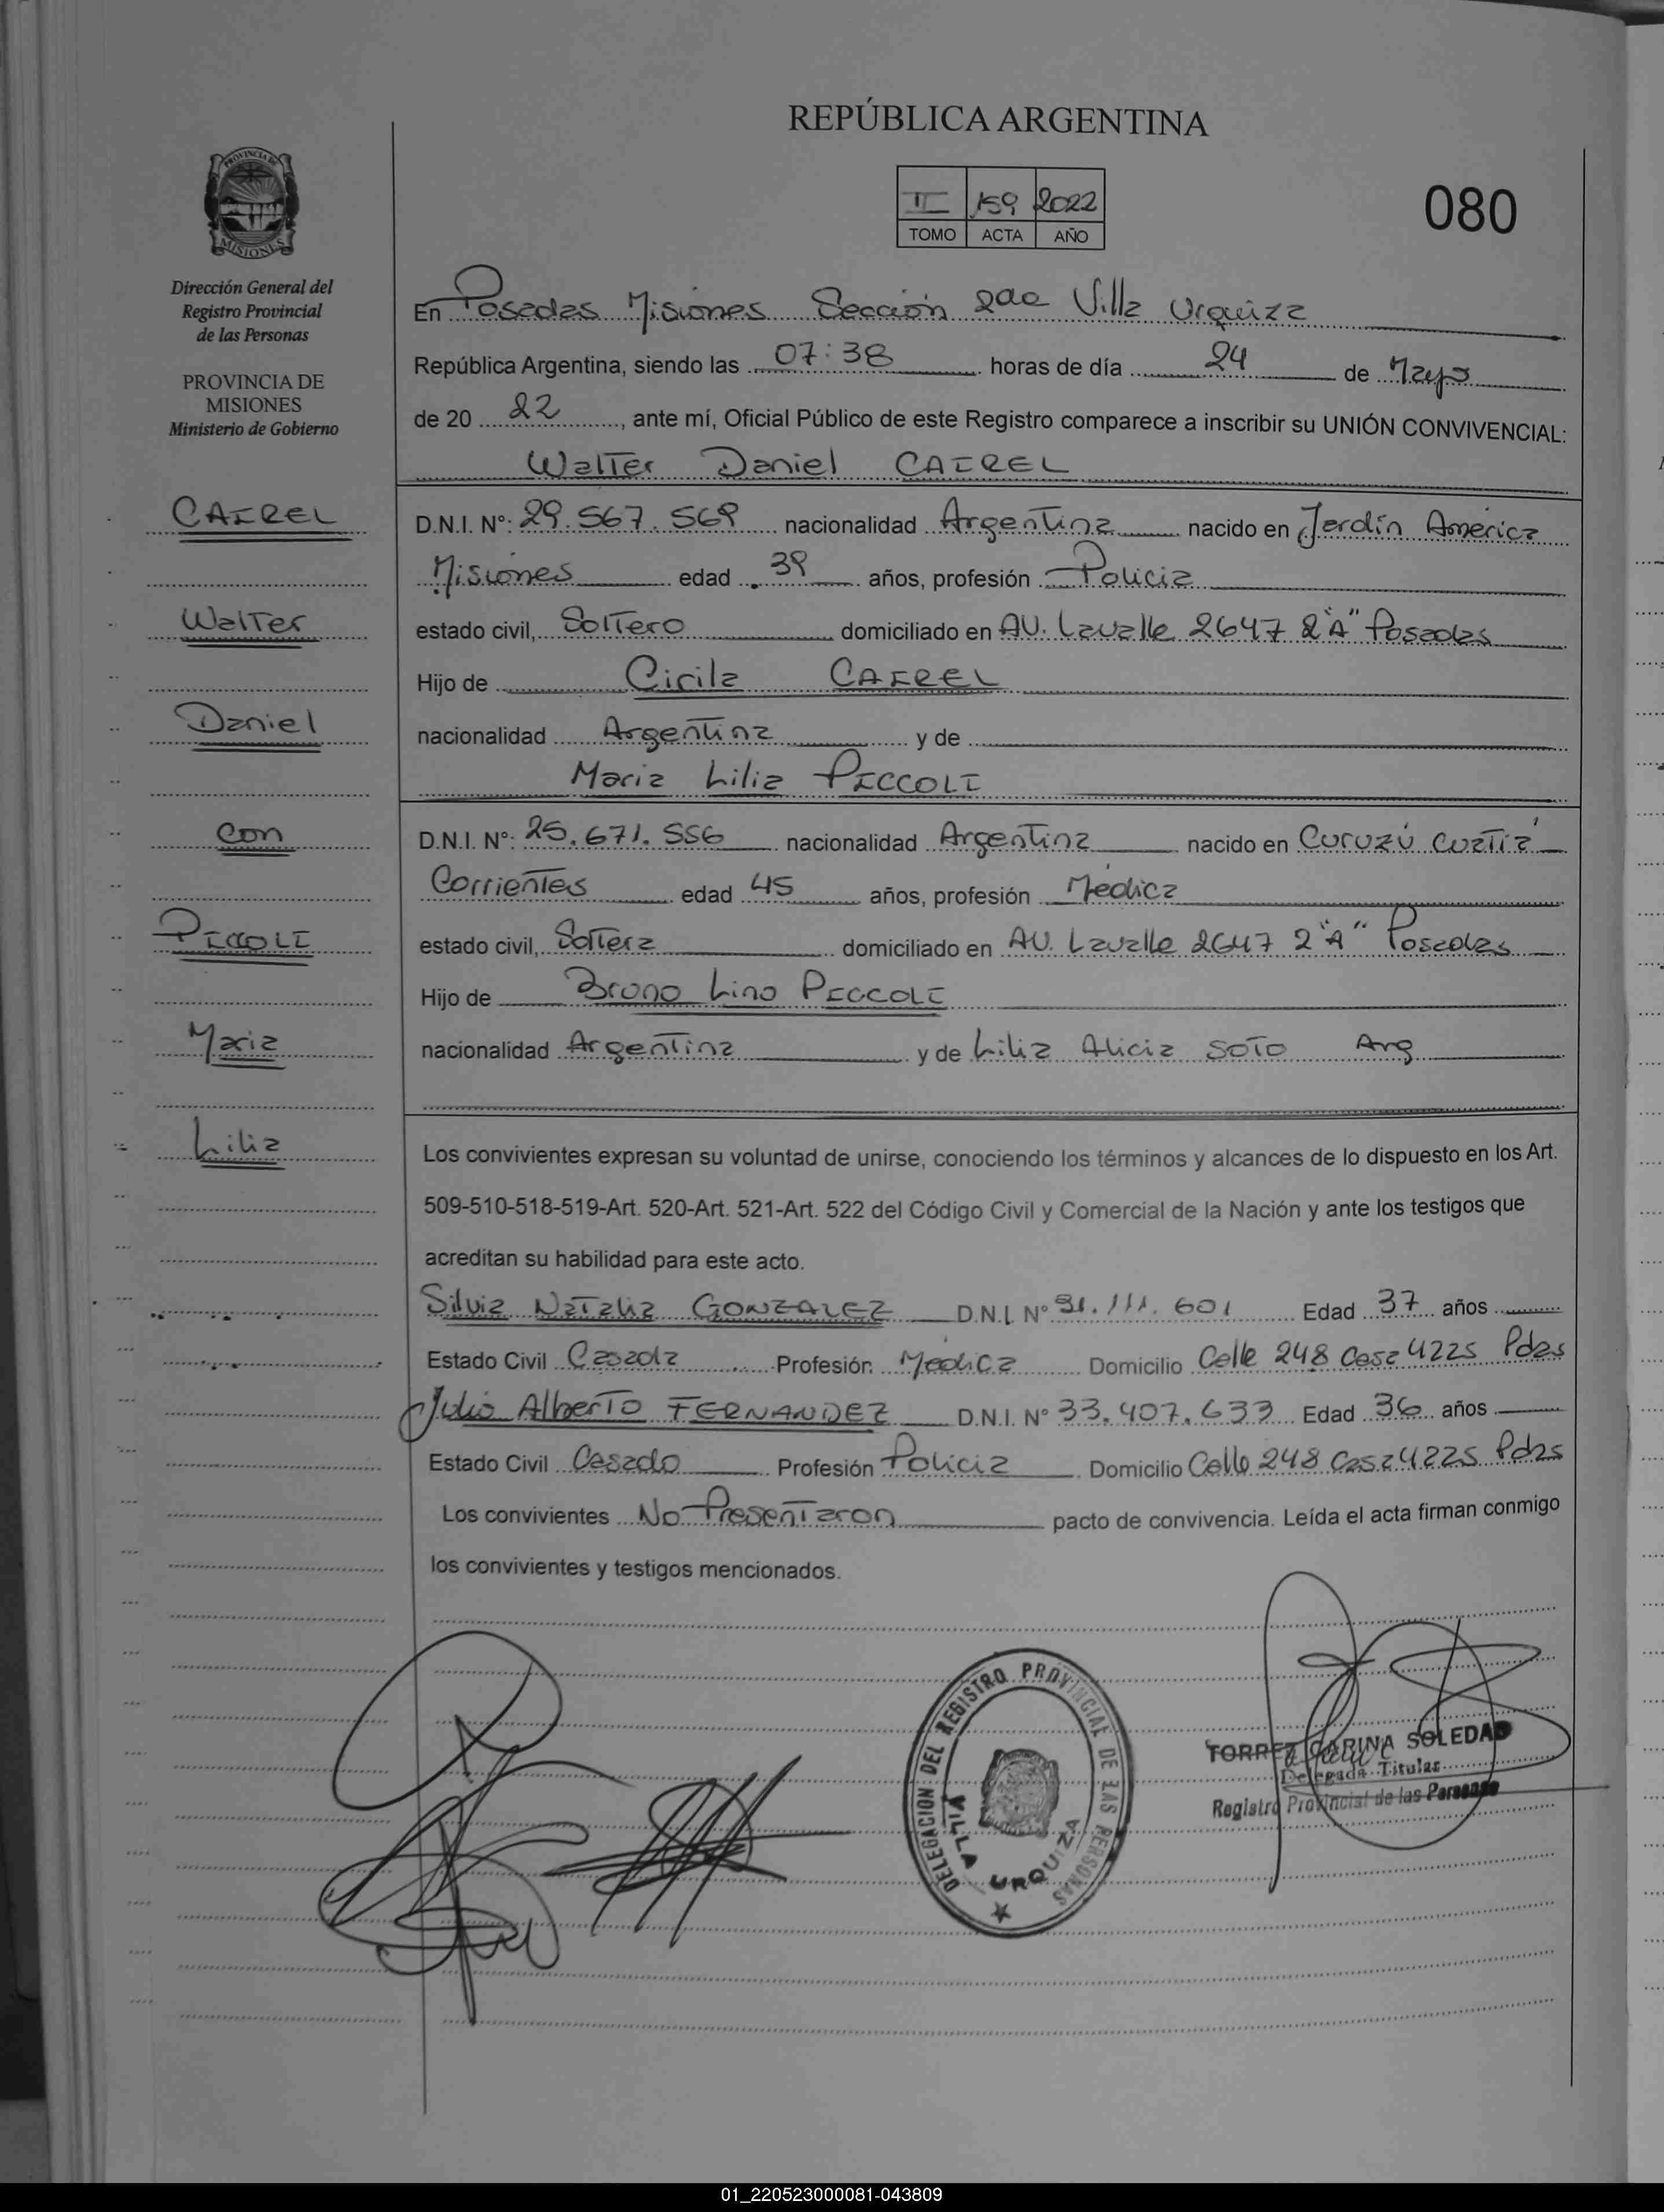 REPÚBLICA ARGENTINA
II 159 2022
TOMO ACTA AÑO
080
PROVINCIA DE
MISIONES
Dirección General del
Registro Provincial
de las Personas
PROVINCIA DE
MISIONES
Ministerio de Gobierno
CAIREL
Walter
Daniel
con
PICCOLI
Maria
Lilia
En Posadas Misiones Sección 2da Villa Urquiza
República Argentina, siendo las 07:38 horas de día 24 de Mayo
de 20 22, ante mí, Oficial Público de este Registro comparece a inscribir su UNIÓN CONVIVENCIAL:
Walter Daniel CAIREL
D.N.I. Nº: 29.567.569 nacionalidad Argentina nacido en Jardín America
Misiones edad 39 años, profesión Policia
estado civil, Soltero domiciliado en AV. Lavalle 2647 2"A" Posadas
Hijo de Cirila CAIREL
nacionalidad Argentina y de
Maria Lilia PICCOLI
D.N.I. Nº: 25.671.556 nacionalidad Argentina nacido en Curuzú Cuatiá
Corrientes edad 45 años, profesión Médica
estado civil, Soltera domiciliado en AV. Lavalle 2647 2"A" Posadas
Hijo de Bruno Lino PICCOLI
nacionalidad Argentina y de Lilia Alicia SOTO Arg
Los convivientes expresan su voluntad de unirse, conociendo los términos y alcances de lo dispuesto en los Art.
509-510-518-519-Art. 520-Art. 521-Art. 522 del Código Civil y Comercial de la Nación y ante los testigos que
acreditan su habilidad para este acto.
Silvia Natalia GONZALEZ D.N.I. Nº 31.111.601 Edad 37 años
Estado Civil Casada Profesión Médica Domicilio Calle 248 Casa 4225 Pdas
Julio Alberto FERNANDEZ D.N.I. Nº 33.407.633 Edad 36 años
Estado Civil Casado Profesión Policia Domicilio Calle 248 Casa 4225 Pdas
Los convivientes No Presentaron pacto de convivencia. Leída el acta firman conmigo
los convivientes y testigos mencionados.
DELEGACION DEL REGISTRO PROVINCIAL DE LAS PERSONAS
VILLA URQUIZA
TORREZ CARINA SOLEDAD
Delegada Titular
Registro Provincial de las Personas
01_220523000081-043809